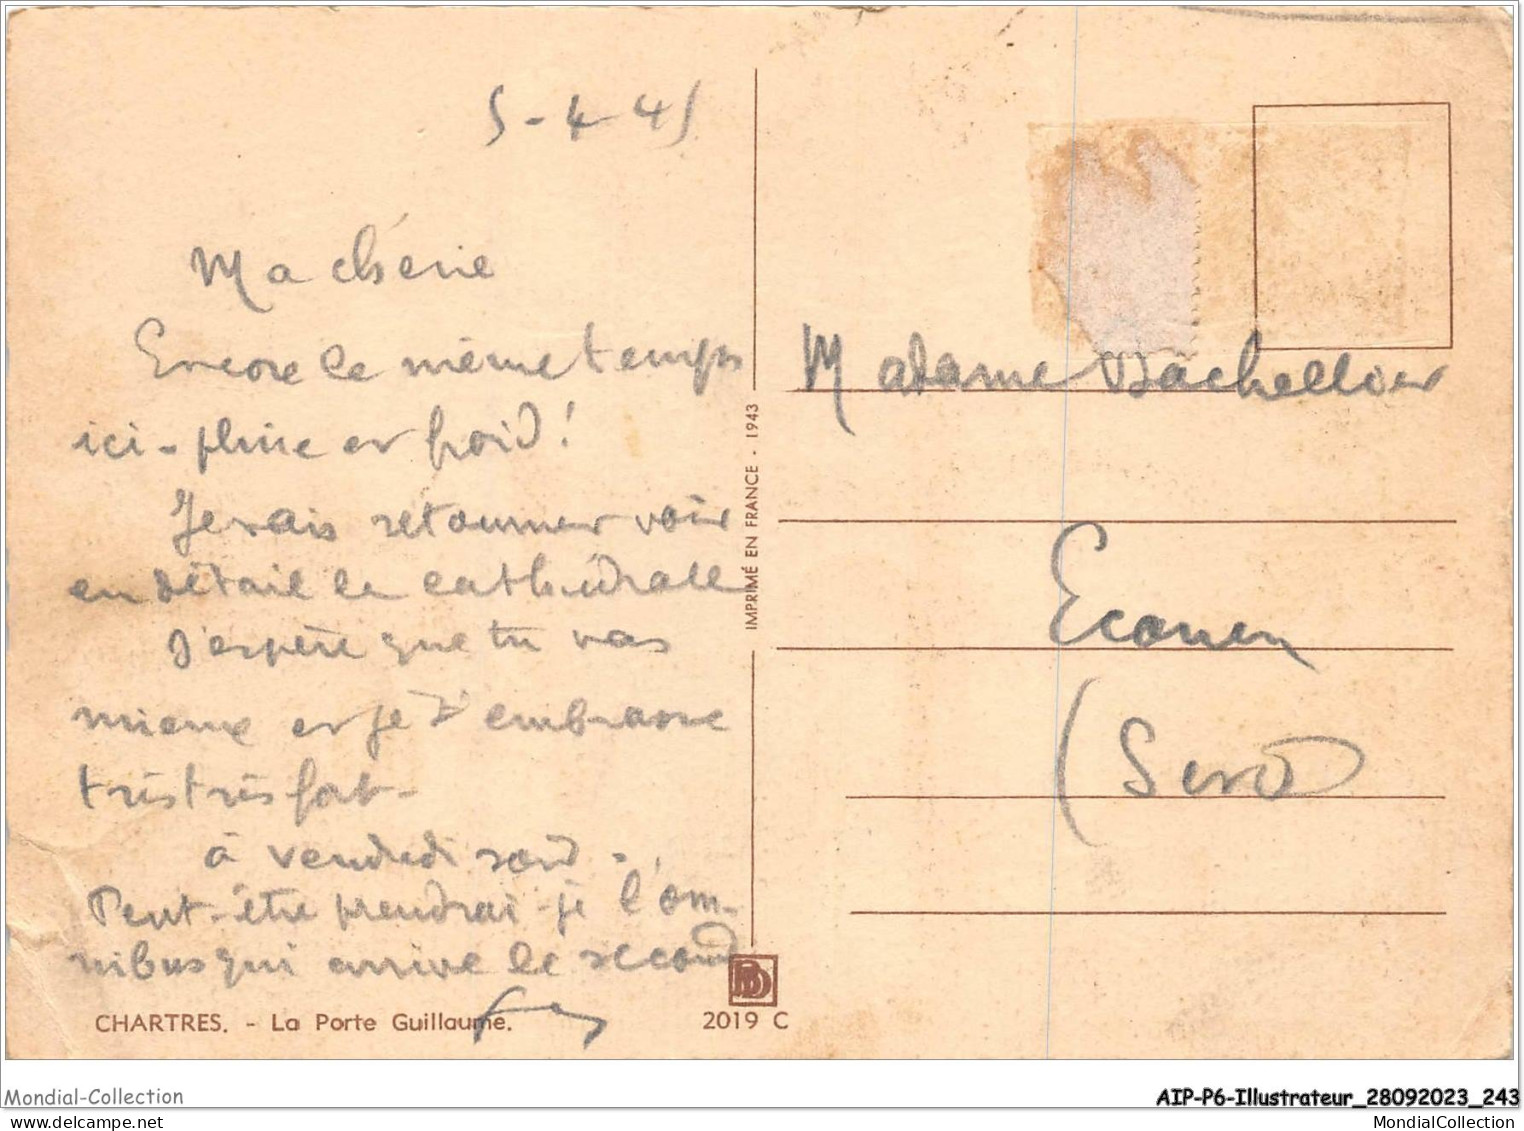 5-4-45
Ma chérie
Encore le même temps
ici - pluie et froid !
Je vais retourner voir
en détail la cathédrale
J'espère que tu vas
mieux et je t'embrasse
très très fort -
à vendredi soir -
Peut-être prendrai-je l'om-
nibus qui arrive le second
CHARTRES. - La Porte Guillaume.
2019 C
IMPRIMÉ EN FRANCE - 1943
Madame Bachellier
Ecouen
(S et O)
Mondial-Collection
AIP-P6-Illustrateur_28092023_243
MondialCollection